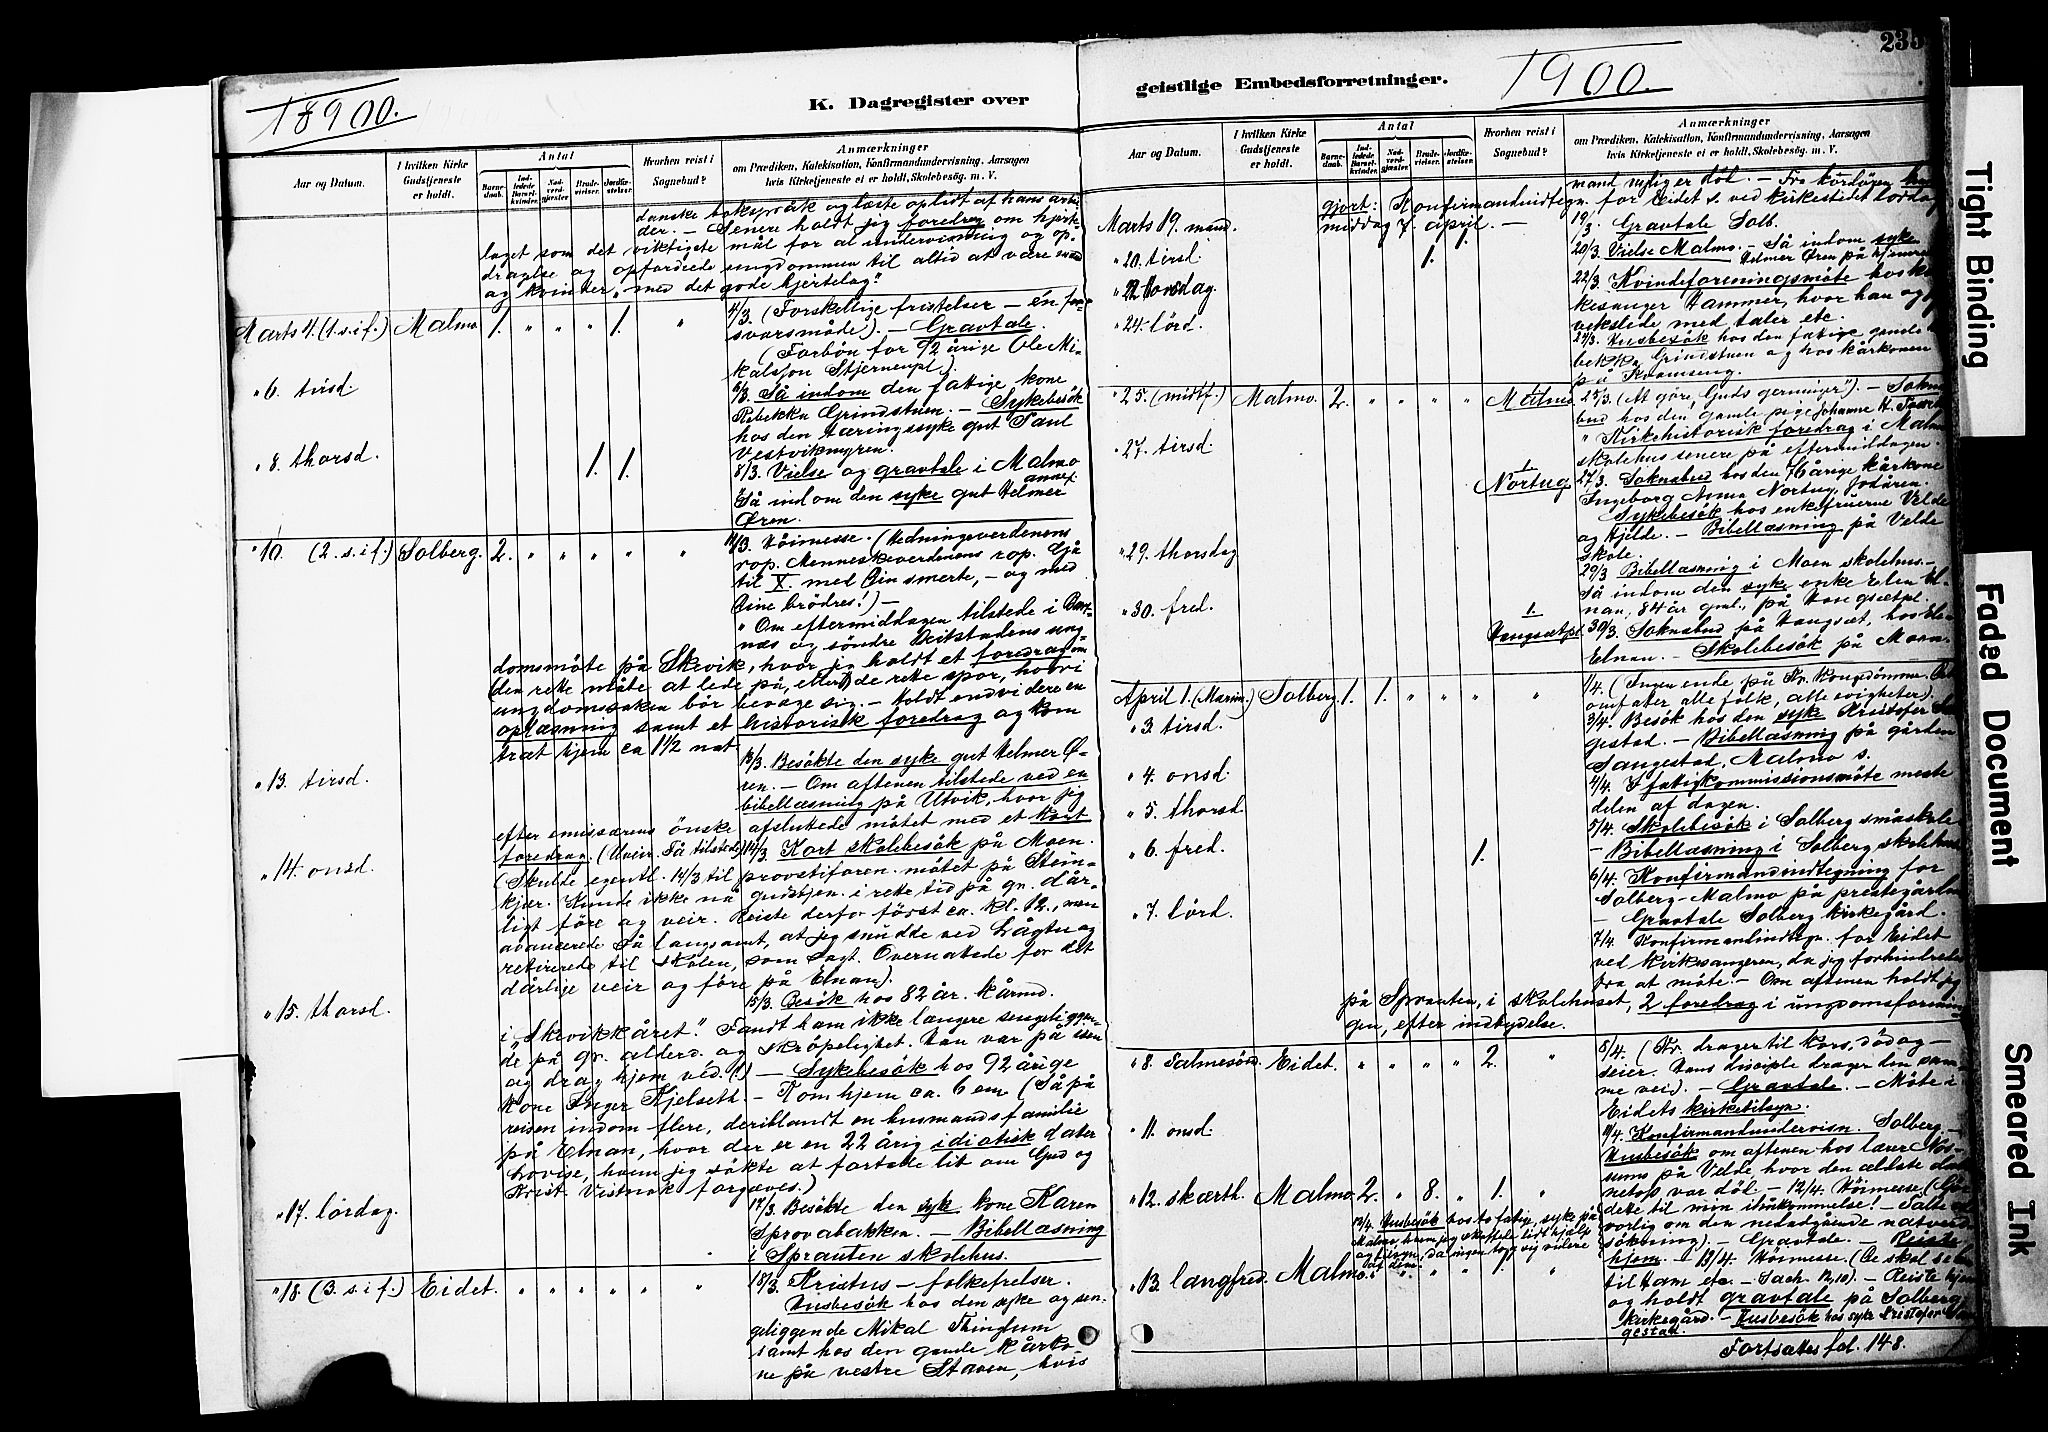 235
18900.
K. Dagregister over
geistlige Embedsforretninger.
1900.
Aar og Datum.
I hvilken Kirke Gudstjeneste er holdt.
Antal
Barne-daab.
Ind-ledede Barsel-kvinder.
Nad-verd-gjæster.
Brude-vielser.
Jordfæ-stelser.
Hvorhen reist i Sognebud?
Anmærkninger
om Prædiken, Katekisation, Konfirmandundervisning, Aarsagen
hvis Kirketjeneste ei er holdt, Skolebesög. m. V.
danske bokspråk og læste op lidt af hans arbei-
der. – Senere holdt jeg foredrag om hjerte-
laget som det viktigste mål for al undervisning og op-
dragelse og opfordrede ungdommen til altid at være mænd
og kvinder „med det gode hjertelag“.
Marts 4. (1. s. i f.) Malmo 1. " " " 1. " 4/3. (Forskellige fristelser – én for-
svarsmåde). – Gravtale.
(Forbön for 92 årige Ole Mi-
kalsson Stjernenpl.).
" 6. tirsd. 6/3. Så indom den fattige kone
Rebekka Grindstuen. – Sykebesök
hos den tæringssyke gut Paul
Vestvikmyren.
" 8. thorsd. 1. 1. 8/3. Vielse og gravtale i Malmo annex.
Så indom den syke gut Helmer
Øren.
" 10. (2. s. i f.) Solberg. 2. " " " " " 11/3. Höimesse. (Hedningeverdenens
rop. Menneskeverdenens rop. Gå
til X. med Din smerte, – og med
Dine brödres!) –
" Om eftermiddagen tilstede i Bart-
nes og söndre Beitstadens ung-
domsmöte på Skevik, hvor jeg holdt et foredrag om
den rette måte at lede på, eller de rette spor, hvori
ungdomssaken bör bevæge sig. – Holdt endvidere en
oplæsning samt et historisk foredrag og kom
træt hjem ca 1 1/2 nat
" 13. tirsd. 13/3. Besökte den syke gut Helmer Ø-
ren. – Om aftenen tilstede ved en
bibellæsning på Utvik, hvor jeg
efter emissærens önske afsluttede mötet med et kort
foredrag. (Uveir. Få tilstede)
" 14. onsd. 14/3. Kort skolebesök på Moen.
(Skulde egentl. 14/3 til provstiforen. mötet på Stein-
kjær. Kunde ikke nå gudstjen. i rette tid på gr. dår-
ligt före og veir. Reiste derfor först ca. kl. 12., men
avancerede så langsomt, at jeg snudde ved Lågtu og
retirerede til skolen, som sagt. Overnattede for det
dårlige veir og före på Elnan).
" 15. thorsd. 15/3. Besök hos 82 år. kårmd.
i „Skevikkåret“. Fandt ham ikke længere sengeliggen-
de på gr. alderd. og skröpelighet. Han var på sten
og drag hjem ved. (!) – Sykebesök hos 92 årige
kone Inger Kjelseth. – Kom hjem ca. 6 em. (Så på
reisen indom flere, deriblandt en husmandsfamilie
på Elnan, hvor der er en 22 årig idiotisk datter
Lovise, hvem jeg sökte at fortælle lit om Gud og
Krist. Vistnok forgæves.)
" 17. lördag. 17/3. Besökte den syke kone Karen
Sprovabakken. – Bibellæsning
i Sprauten skolehus.
" 18. (3. s. i f.) Eidet. " " " " " " 18/3. Kristus – folkefrelser.
Husbesök hos den syke og sen-
geliggende Mikal Thinglum
samt hos den gamle kårko-
ne på vestre Staven, hvis
Aar og Datum.
I hvilken Kirke Gudstjeneste er holdt.
Antal
Barne-daab.
Ind-ledede Barsel-kvinder.
Nad-verd-gjæster.
Brude-vielser.
Jordfæ-stelser.
Hvorhen reist i Sognebud?
Anmærkninger
om Prædiken, Katekisation, Konfirmandundervisning, Aarsagen
hvis Kirketjeneste ei er holdt, Skolebesög. m. V.
mand nylig er död. – Fra kördören
gjort: Konfirmandindtegn. for Eidet s. ved kirkestedet lördag
middag 7. april. –
Marts 19. mand. 19/3. Gravtale Solb.
" 20. tirsd 1. 20/3. Vielse Malmo. – Så indom syke
Helmer Øren på hjemvei
" 22 torsdag. 22/3. Kvindeforeningsmöte hos
kesanger Hammer, hvor han og
vekslede med taler etc.
" 24. lörd. 24/3. Husbesök hos den fattige, gamle
bekka Grindstuen og hos kårkonen
på Kvamseng.
" 25. (midtf.) Malmo. 2. " " " " Malmo. 25/3. (At göre „Guds gerninger“). – Sokne-
bud hos den gamle pige Johanne H.
" Kirkehistorisk foredrag i Malmo
skolehus senere på eftermiddagen.
" 27. tirsd. 1. Nortug 27/3. Soknebud hos den 76 årige kårkone
Ingeborg Anna Nortug, Jodåren.
Sykebesök hos enkefruerne Velde
og Hjelde. – Bibellæsning på Velde
skole.
" 29. thorsdag 29/3 Bibellæsning i Moen skolehus. –
Så indom den syke enke Elen El-
nan, 84 år gml., på Hangsætpl.
" 30. fred. 1. Hangsætpl. 30/3. Soknebud på Hangsæt, hos
Elnan. – Skolebesök på Moen.
April 1. (Marim.) Solberg. 1. 1. " " " " 1/4. (Ingen ende på Kr. kongedömme. Det
omfatter alle folk, alle evigheter).
" 3. tirsd. 3/4. Besök hos den syke Kristofer San-
gestad. – Bibellæsning på gården
Sangestad, Malmo s.
" 4. onsd. 4/4. I fattigkommissionsmöte meste
delen af dagen.
" 5. thorsd. 5/4. Skolebesök i Solberg småskole
– Bibellæsning i Solberg skolehus
" 6. fred. 1. 6/4. Konfirmandindtegning for
Solberg–Malmo på prestegården
– Gravtale Solberg kirkegård.
" 7. lörd. 7/4. Konfirmandindtegn. for Eidet
ved kirkesangeren, da jeg forhindredes
fra at möte. – Om aftenen holdt jeg
på Sprauten, i skolehuset, 2 foredrag i ungdomsforenin-
gen, efter indbydelse.
" 8. Palmesönd. Eidet. " " " " 2. " 8/4. (Kr. drager til kors, död og –
seier. Hans disciple drager den sam-
me vei). – Gravtale. – Möte i
Eidets kirketilsyn.
" 11. onsd. 11/4. Konfirmandundervisn. Solberg. –
Husbesök om aftenen hos lærer
på Velde, hvor den ældste
netop var död. –
" 12. skærth. Malmo. 2. " 8. " 1. " 12/4. Höimesse. (Gör
dette til min ihukommelse! –
vorlig om den nedadgående natverd-
sökning). – Gravtale. – Reiste
hjem. –
13/4. Husbesök hos to fattige, syke på
Malmo, hvem jeg skaffede lidt hjælp
og tilsyn, da ingen tog sig videre
af dem.
" 13. langfred. Malmo. " " " " 1. " 13/4. Höimesse. (De skal se hen
til ham etc. – Sach. 12,10). – Reiste hjem
og holdt gravtale på Solberg
kirkegård. – Husbesök hos syke Kristofer San-
gestad.
Fortsættes fol. 148.
Tight Binding
Faded Document
Smeared Ink